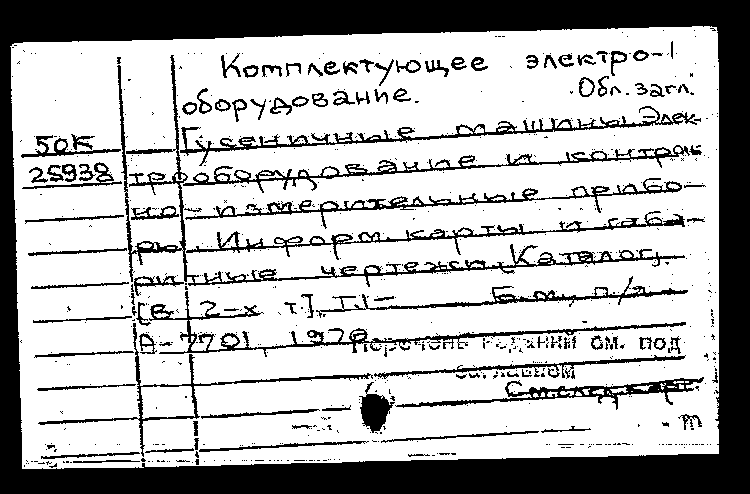 Комплектующее электро-
оборудование. Обл. загл.
50К Гусеничные машины. Элек-
25938 трооборудование и контроль
но-измерительные прибо-
ры. Информ. карты и габа-
ритные чертежи. Каталог.
[в 2-х т.]. Т.1- Б.м., п/я
А-7701, 1970
Перечень изданий см. под
заглавием
См. след. карт.
т